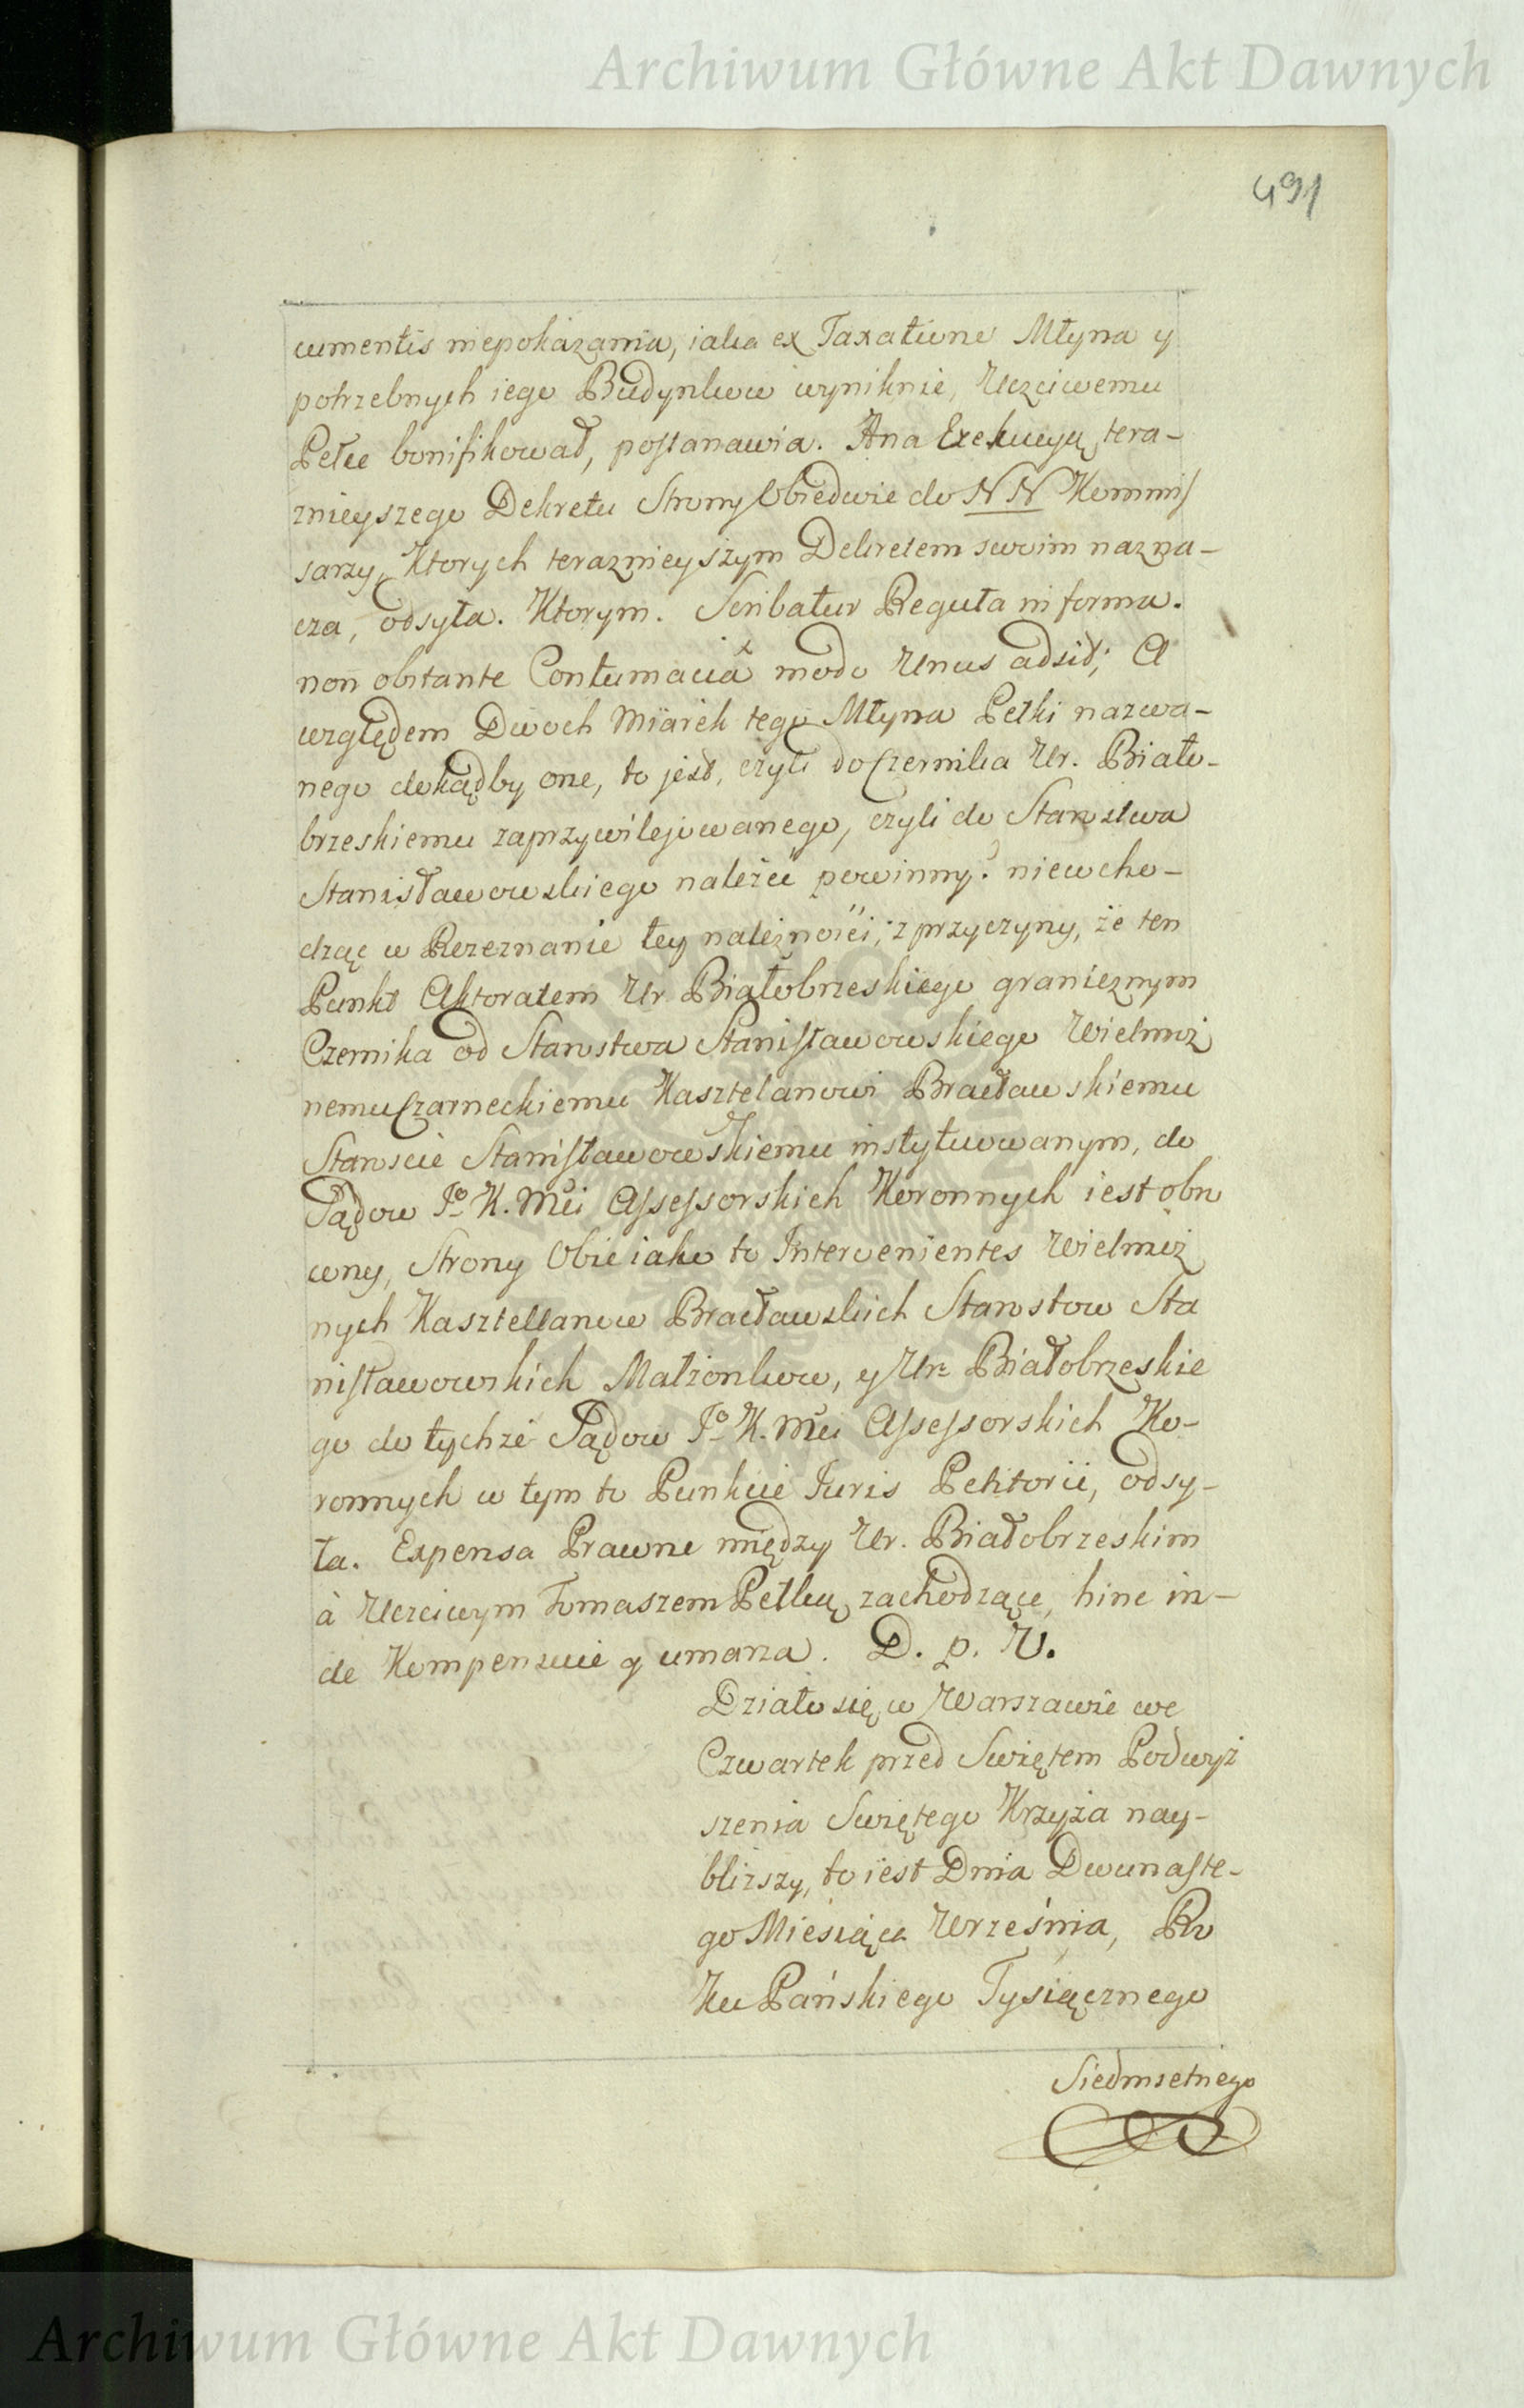 Archiwum Główne Akt Dawnych
491
cumentis niepokazania, iaka ex Taxatione Młyna y
potrzebnych iego Budynkow wyniknie, Uczciwemu
Pełce bonifikował, postanawia. A na Exekucyą tera-
znieyszego Dekretu Strony Obiedwie do NN Kommis
sarzy, Ktorych teraznieyszym Dekretem swoim nazna-
cza, odsyła. Ktorym. Scribatur Reguła in forma.
non obstante Contumaciâ modo Unus adsit; A
względem Dwoch Miarek tego Młyna Pełki nazwa-
nego dokądby one, to jest, czyli do Czernika Ur. Biało-
brzeskiemu zaprzywilejowanego, czyli do Starostwa
Stanisławowskiego należeć powinny? niewcho-
dząc w Rozeznanie tey należności, z przyczyny, że ten
Punkt Aktoratem Ur. Białobrzeskiego granicznym
Czernika od Starostwa Stanisławowskiego Wielmoż
nemu Czarneckiemu Kasztelanowi Bracławskiemu
Staroscie Stanisławowskiemu instytuowanym, do
Sądow Jo K. Mci Assessorskich Koronnych iest obro
cony, Strony Obie iako to Intervenientes Wielmoż
nych Kasztellanow Bracławskich Starostow Sta
nisławowskich Małżonkow, y Ur. Białobrzeskie
go do tychże Sądow Jo K. Mci Assessorskich Ko-
ronnych w tym to Punkcie Juris Petitorii, odsy-
ła. Expensa Prawne między Ur. Białobrzeskim
à Uczciwym Tomaszem Pełką zachodzące, hinc in-
de Kompensuie y umarza. D. p. V.
Działo się w Warszawie we
Czwartek przed Swiętem Podwyż
szenia Swiętego Krzyża nay-
bliższy, to iest Dnia Dwunaste-
go Miesiąca Września, Ro
Ku Pańskiego Tysiącznego
Siedmsetnego
Archiwum Główne Akt Dawnych